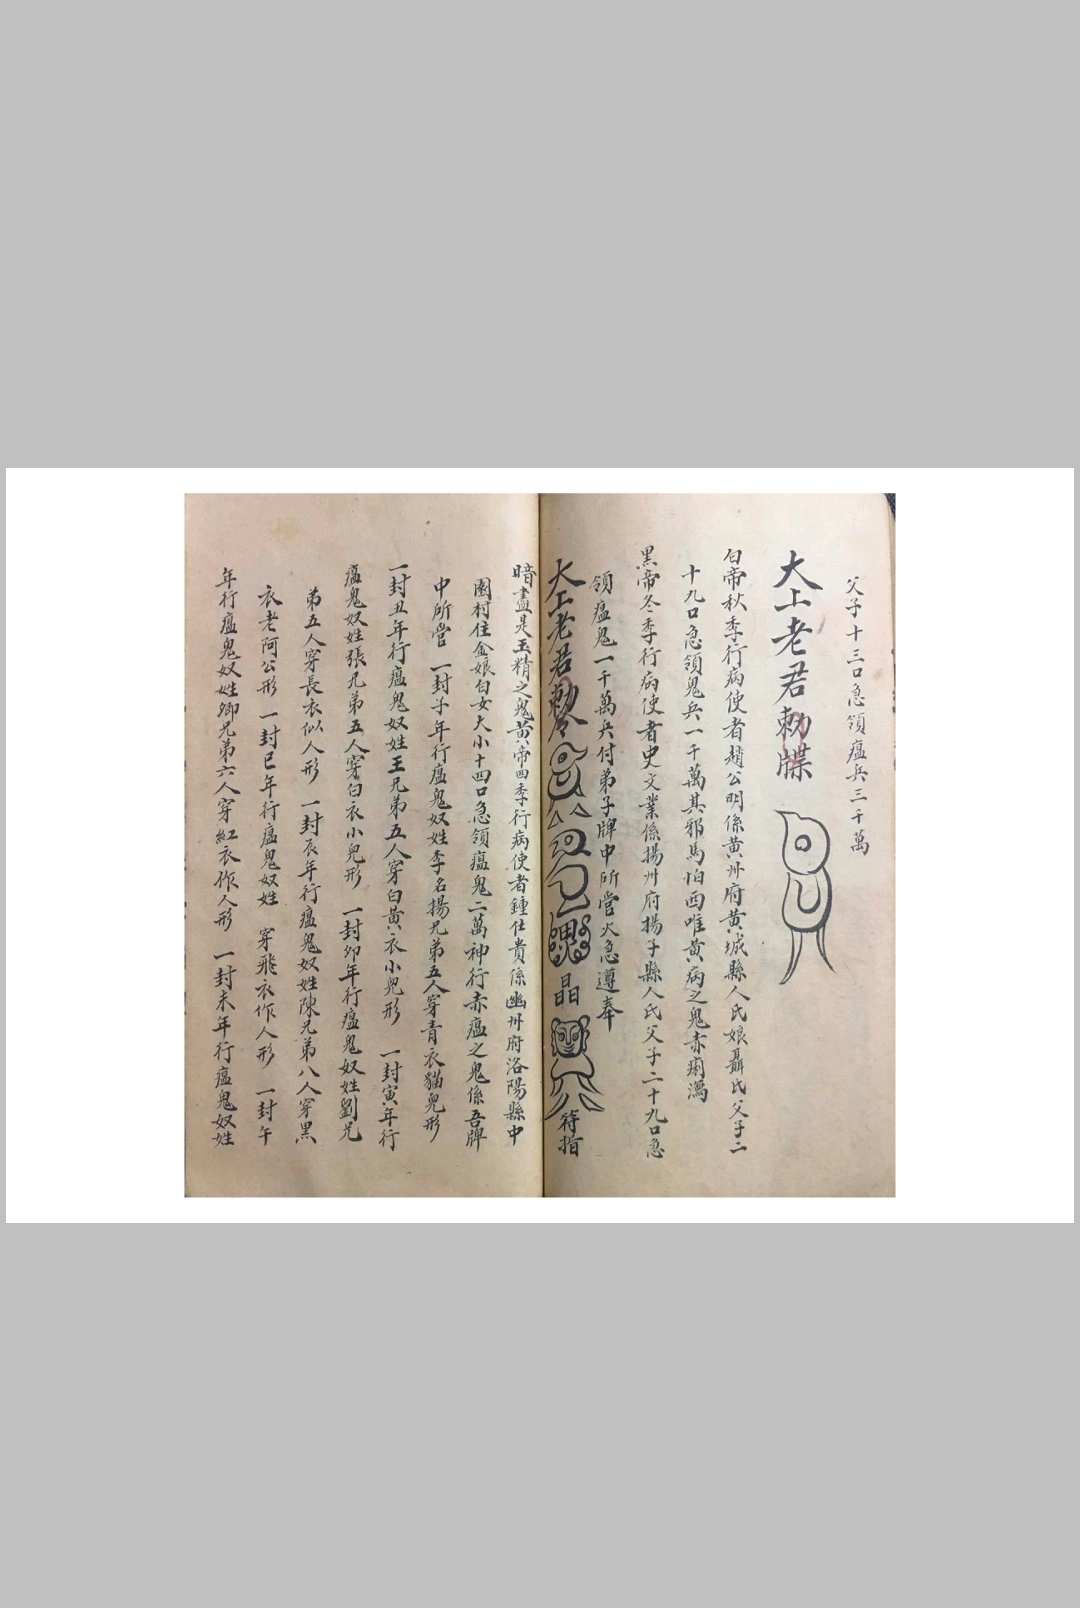 父子十三口急領瘟兵三千萬
大上老君勅牒
白帝秋季行病使者趙公明係黄州府黄城縣人氏娘聶氏父子二
十九口急領鬼兵一千萬其邪馬怕西唯黄病之鬼赤痢瀉
黑帝冬季行病使者史文業係揚州府揚子縣人氏父子二十九口急
領瘟鬼一千萬兵付弟子牌中所管火急遵奉
大上老君勅令 魄 晶 符指
暗盡是玉精之鬼黄帝四季行病使者鍾仕貴係幽州府洛陽縣中
園村住金娘白女大小十四口急領瘟鬼二萬神行赤瘟之鬼係吾牌
中所管 一封子年行瘟鬼奴姓李名揚兄弟五人穿青衣貓兒形
一封丑年行瘟鬼奴姓王兄弟五人穿白黄衣小兒形 一封寅年行
瘟鬼奴姓張兄弟五人穿白衣小兒形 一封卯年行瘟鬼奴姓劉兄
弟五人穿長衣似人形 一封辰年行瘟鬼奴姓陳兄弟八人穿黑
衣老阿公形 一封巳年行瘟鬼奴姓 穿飛衣作人形 一封午
年行瘟鬼奴姓卿兄弟六人穿紅衣作人形 一封未年行瘟鬼奴姓